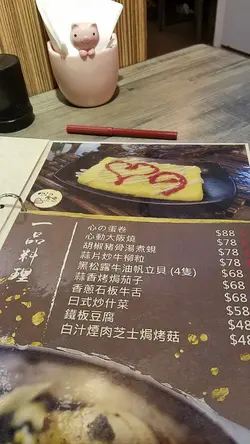 一品料理
心の蛋卷 $88
心動大阪燒 $78
胡椒豬骨湯煮蜆 $78
蒜片炒牛柳粒 $68
黑松露牛油帆立貝 (4隻) $68
蒜香烤焗茄子 $68
香蔥石板牛舌 $68
日式炒什菜 $58
鐵板豆腐 $48
白汁煙肉芝士焗烤菇 $48